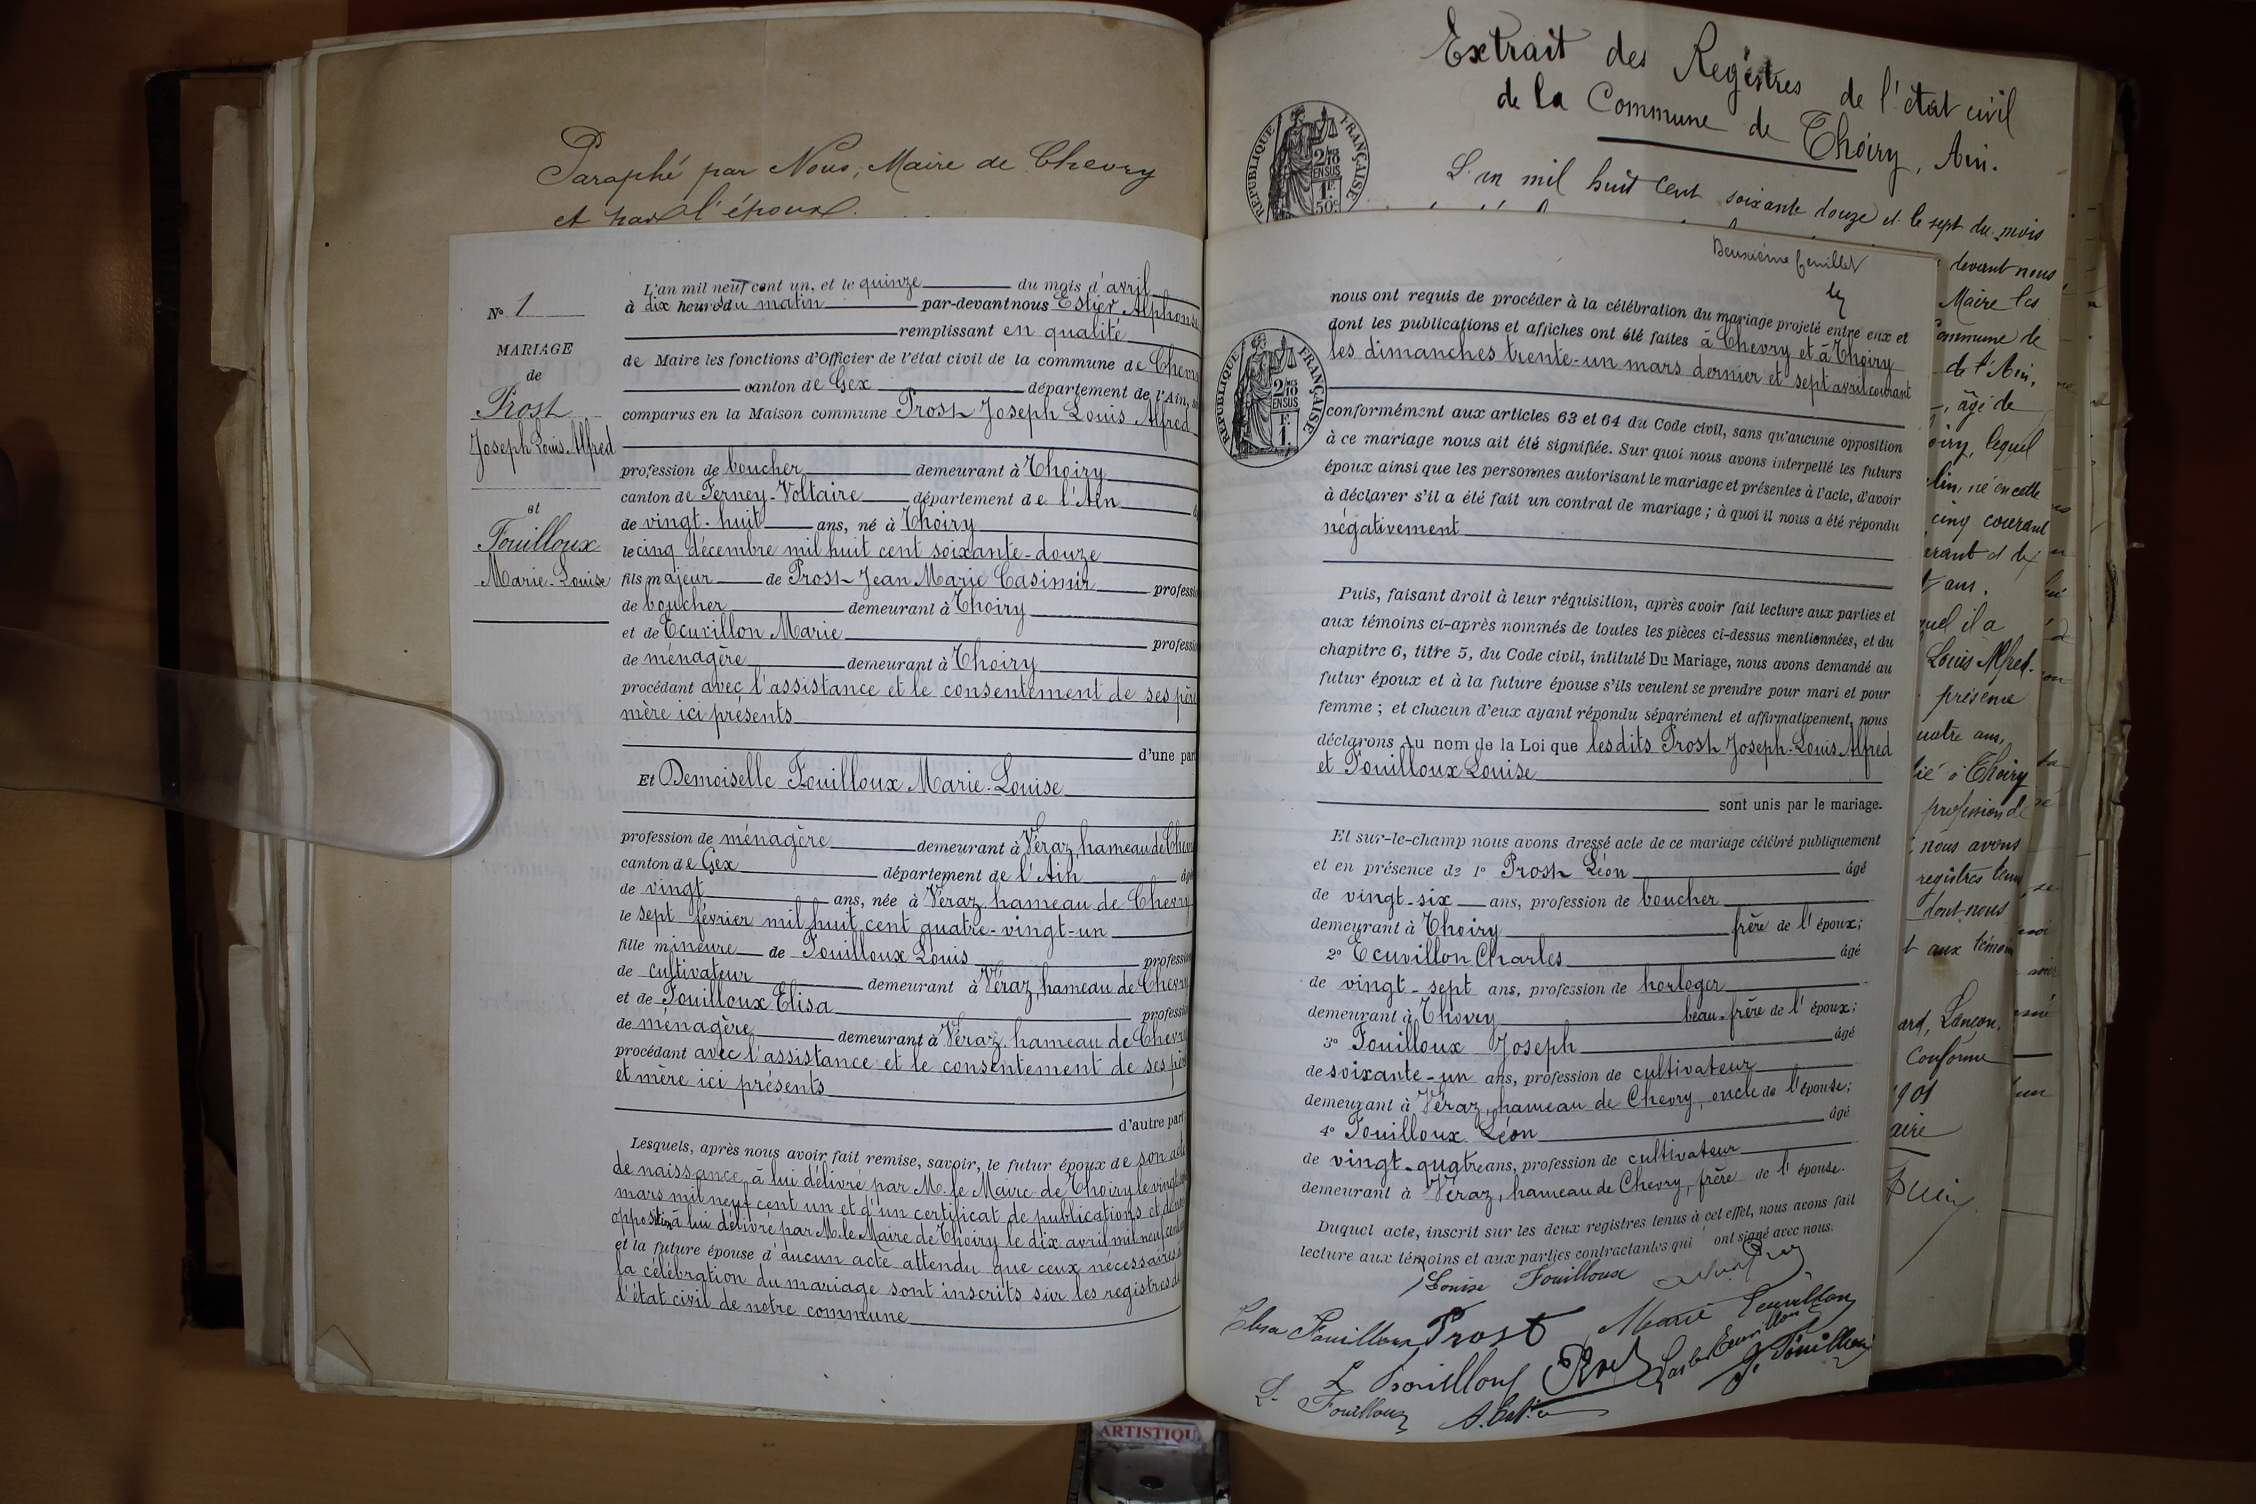 Paraphé par Nous, Maire de Chevry
et par l'époux.
L'an mil neuf cent un, et le quinze du mois d'avril
à dix heures du matin par-devant nous Estier Alphonse
remplissant en qualité
de Maire les fonctions d'Officier de l'état civil de la commune de Chevry
canton de Gex département de l'Ain,
comparus en la Maison commune Prost Joseph Louis Alfred
profession de boucher demeurant à Thoiry
canton de Ferney-Voltaire département de l'Ain
de vingt-huit ans, né à Thoiry
le cinq décembre mil huit cent soixante-douze
fils majeur de Prost Jean Marie Casimir profession
de boucher demeurant à Thoiry
et de Ecuvillon Marie profession
de ménagère demeurant à Thoiry
procédant avec l'assistance et le consentement de ses père
mère ici présents
d'une part
Et Demoiselle Fouilloux Marie-Louise
profession de ménagère demeurant à Véraz, hameau de Chevry
canton de Gex département de l'Ain âgé
de vingt ans, née à Véraz hameau de Chevry
le sept février mil huit cent quatre-vingt-un
fille mineure de Fouilloux Louis profession
de cultivateur demeurant à Véraz, hameau de Chevry
et de Fouilloux Elisa profession
de ménagère demeurant à Véraz, hameau de Chevry
procédant avec l'assistance et le consentement de ses père
et mère ici présents
d'autre part
Lesquels, après nous avoir fait remise, savoir, le futur époux de son acte
de naissance, à lui délivré par M. le Maire de Thoiry le vingt
mars mil neuf cent un et d'un certificat de publications et de non
opposition à lui délivré par M. le Maire de Thoiry le dix avril mil neuf cent un
et la future épouse d'aucun acte attendu que ceux nécessaires à
la célébration du mariage sont inscrits sur les registres de
l'état civil de notre commune
N° 1
MARIAGE
de
Prost
Joseph Louis Alfred
et
Fouilloux
Marie-Louise
Extrait des Registres de l'état civil
de la Commune de Thoiry, Ain.
L'an mil huit cent soixante douze et le sept du mois
RÉPUBLIQUE FRANÇAISE
2/10 EN SUS
1F 50c
Deuxième feuillet
nous ont requis de procéder à la célébration du mariage projeté entre eux et
dont les publications et affiches ont été faites à Chevry et à Thoiry
les dimanches trente-un mars dernier et sept avril courant
RÉPUBLIQUE FRANÇAISE
2/10 EN SUS
F. 1.
conformément aux articles 63 et 64 du Code civil, sans qu'aucune opposition
à ce mariage nous ait été signifiée. Sur quoi nous avons interpellé les futurs
époux ainsi que les personnes autorisant le mariage et présentes à l'acte, d'avoir
à déclarer s'il a été fait un contrat de mariage ; à quoi il nous a été répondu
négativement
Puis, faisant droit à leur réquisition, après avoir fait lecture aux parties et
aux témoins ci-après nommés de toutes les pièces ci-dessus mentionnées, et du
chapitre 6, titre 5, du Code civil, intitulé Du Mariage, nous avons demandé au
futur époux et à la future épouse s'ils veulent se prendre pour mari et pour
femme ; et chacun d'eux ayant répondu séparément et affirmativement, nous
déclarons Au nom de la Loi que lesdits Prost Joseph-Louis Alfred
et Fouilloux Louise
sont unis par le mariage.
Et sur-le-champ nous avons dressé acte de ce mariage célébré publiquement
et en présence de 1° Prost Léon âgé
de vingt-six ans, profession de boucher
demeurant à Thoiry frère de l'époux;
2° Ecuvillon Charles âgé
de vingt-sept ans, profession de horloger
demeurant à Thoiry beau-frère de l'époux;
3° Fouilloux Joseph âgé
de soixante-un ans, profession de cultivateur
demeurant à Véraz, hameau de Chevry, oncle de l'épouse;
4° Fouilloux Léon âgé
de vingt-quatre ans, profession de cultivateur
demeurant à Véraz, hameau de Chevry, frère de l'épouse.
Duquel acte, inscrit sur les deux registres tenus à cet effet, nous avons fait
lecture aux témoins et aux parties contractantes qui ont signé avec nous.
Louise Fouilloux
Elisa Fouilloux Prost Marie Ecuvillon
L Fouilloux Charles Ecuvillon J. Fouilloux
L. Fouilloux A. Estier
devant nous
Maire les
Commune de
de l'Ain,
âgé de
lequel
né en cette
cinq courant
ans.
quel il a
Louis Alfred.
présence
quatre ans,
à Thoiry
profession de
nous avons
registres tenus
dont nous
aux témoins
Lançon,
Conforme
1901
ARTISTIQU